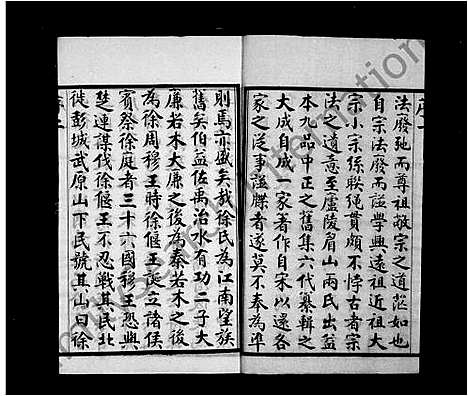 法廢弛而尊祖敬宗之道茫如也
自宗法廢而譜學興遠祖近祖大
宗小宗條聯繩貫頗不悖古者宗
法之遺意至廬陵眉山兩氏出益
本九品中正之舊集六代纂輯之
大成自成一家著作自宋以還各
家之從事譜牒者遂莫不奉為準
則焉亦盛矣哉徐氏為江南望族
舊矣伯益佐禹治水有功二子大
廉若木大廉之後為秦若木之後
為徐周穆王時徐偃王誕立諸侯
賓祭徐庭者三十六國穆王恐與
楚連謀伐徐偃王不忍戰其民北
徙彭城武原山下民號其山曰徐